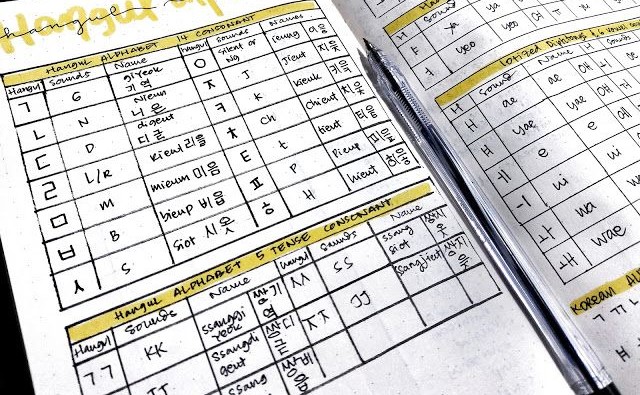 Hangul
HANGUL ALPHABET 14 CONSONANT
Hangul Sounds Name Hangul Sounds Names
ㄱ G giyeok 기역 ㅇ silent or NG ieung 이응
ㄴ N Nieun 니은 ㅈ J Jieut 지읒
ㄷ D digeut 디귿 ㅋ K kieuk 키읔
ㄹ L/R 리을 ㅊ Ch Chieut 치읓
ㅁ M mieum 미음 ㅌ t tieut 티읕
ㅂ B bieup 비읍 ㅍ P Pieup 피읖
ㅅ S siot 시옷 ㅎ H hieut 히읗
HANGUL ALPHABET 5 TENSE CONSONANT
Hangul Sounds Name Hangul Sounds Name
ㄱㄱ KK ssanggi yeok 쌍기역 ㅅㅅ SS ssang siot 쌍시옷
ssangdi geut 쌍디귿 ㅈㅈ JJ ssangjieut 쌍지읒
ssang 쌍비
H Sound
ㅑ ya
ㅕ yeo
H Sound Name H Sound
ㅐ ae 애
ㅒ yae 얘
ㅔ e 에
ㅟ wi
ㅘ wa
ㅙ wae
KOREAN